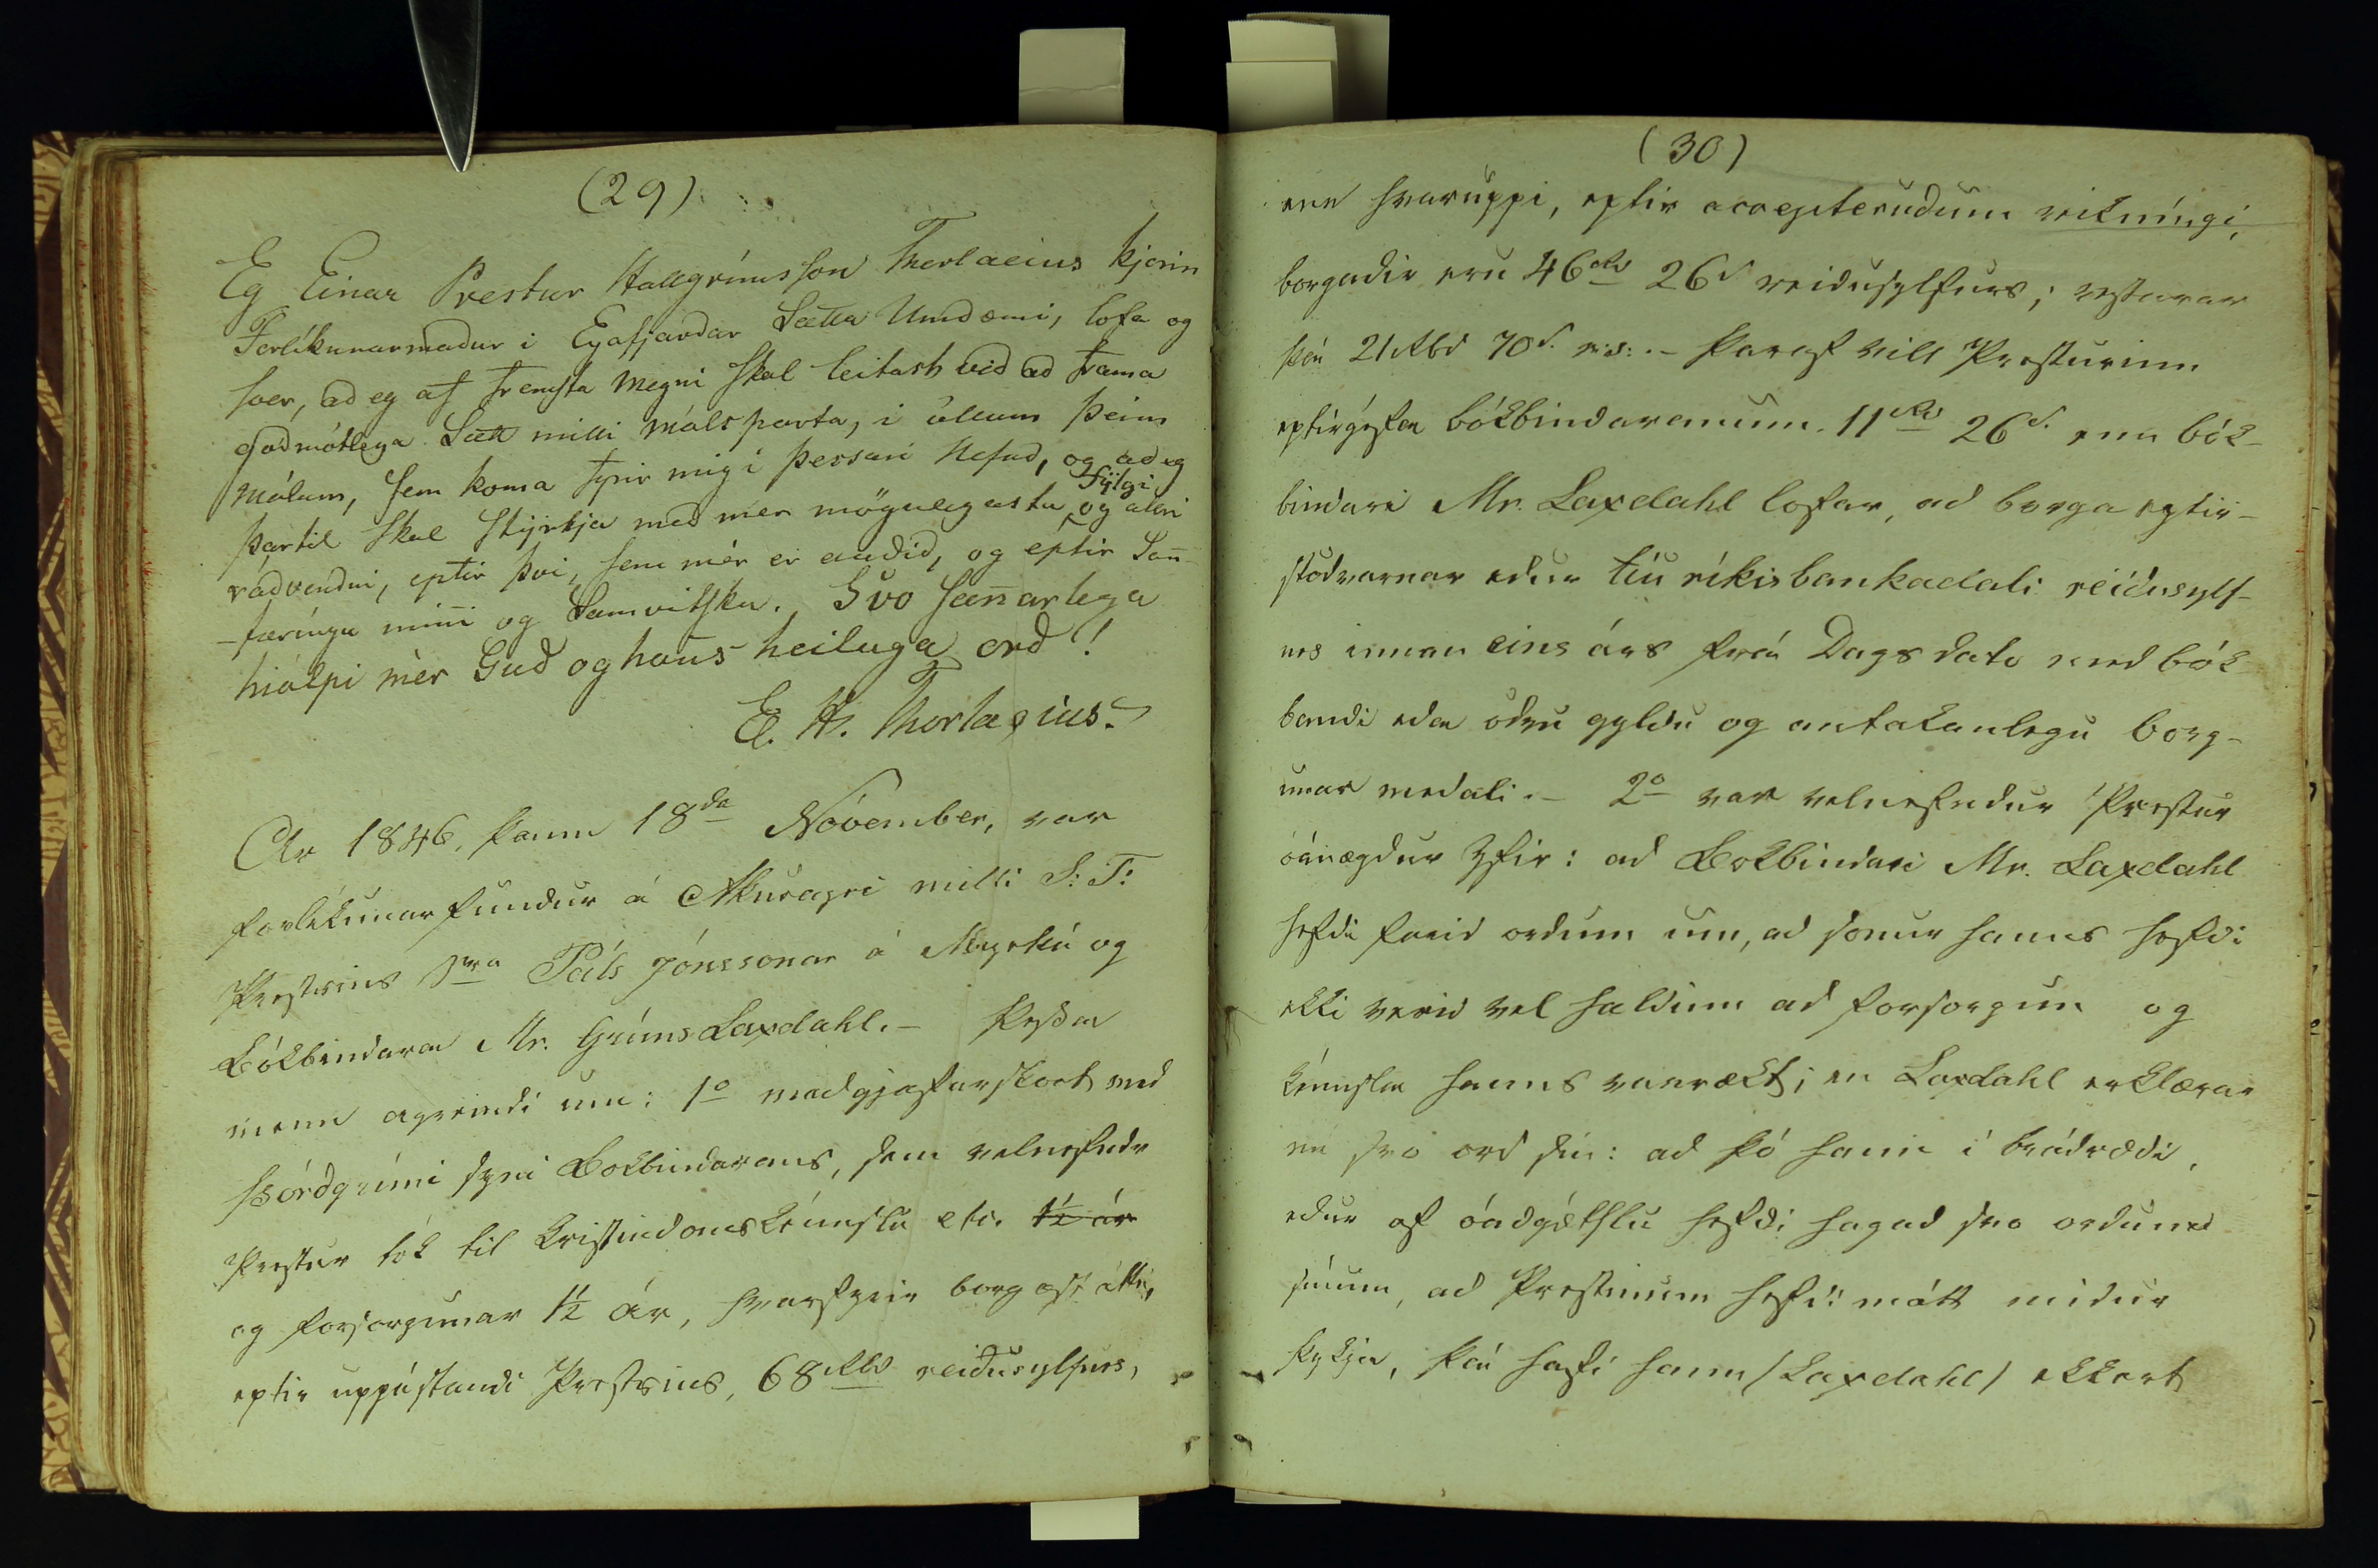 (29)
Eg Einar Prestur Hallgrímsson Thorlacius kjörin
Forlíkunarmadur i Eyafjardar Sætta Umdæmi, lofa og
sver, ad eg af fremsta megni skal leitast vid ad frama
godmótlega Sætt milli málsparta, i öllum þeim
málum, sem koma fyrir mig i þessari Nefnd, og ad eg
þartil skal styrkja med mér mögulegastu fýlgi og allri
rádvendni, eptir þvi, sem mér er audid, og eptir Sann-
-færíngu minni og Samvitsku. Svo sannarlega
hiálpi mér Gud og hans heilaga ord!
E. H. Thorlacius.
Ár 1846, þann 18da Nóvember, var
forlikunarfundur á Akureyri milli S: T:
Prestsins Sra Páls Jónssonar á Myrká og
Bókbindara Mr. Gríms Laxdahl. – Þessa
menn agreindi um: 1o medgjafarskort med
Þórdgrími syni Bokbindarans, sem velnefndr
Prestur tók til Kristindomskennslu etc. 1½ ár
og forsorgunar 1½ ár, hvarfyrir borgast átti,
eptir uppástandi Prestsins, 68 Rbd reidusylfurs,
(30)
enn hvaruppi, eptir accepterudum reikníngi,
borgadir eru 46 Rd 26 s reidusylfurs; restarar
þá 21 Rbd 70 s. r: s: . – Þaraf vill Presturinn
eptirgéfa bókbindaranum 11 Rd 26 s. enn bók-
bindari Mr. Laxdahl lofar, ad borga eptir-
stödvarnar edur tíu ríkisbankadali reidusylf-
urs innan eins árs frá Dags dato med bók-
bandi eda ödru gyldu og antakanlegu borg-
unar medali. – 2o var velnefndur Prestur
óánægdur yfir: ad Bokbindari Mr. Laxdahl
hefdi farid ordum um, ad sonur hanns hefdi
ekki verid vel haldinn ad forsorgun og
kennsla hanns vanrækt; en Laxdahl erklærar
nú svo ord sín: ad þó hann i brádrædi,
edur af óadgétslu hefdi hagad svo ordum
sínum, ad Prestinum hefdi mátt midur
þykja, þá hafi hann /Laxdahl/ ekkert